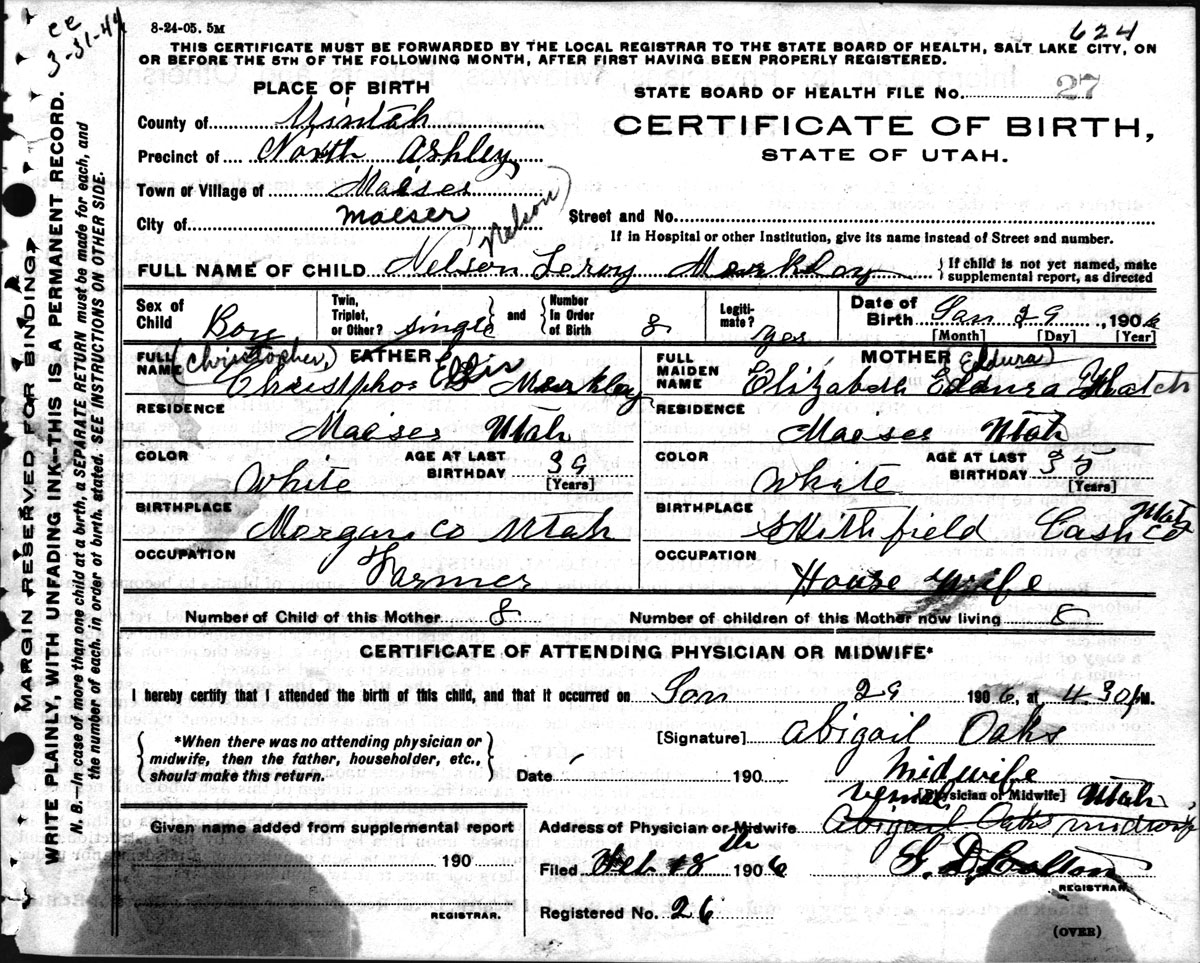 ce
3-31-44
8-24-05. 5M
624
THIS CERTIFICATE MUST BE FORWARDED BY THE LOCAL REGISTRAR TO THE STATE BOARD OF HEALTH, SALT LAKE CITY, ON
OR BEFORE THE 5TH OF THE FOLLOWING MONTH, AFTER FIRST HAVING BEEN PROPERLY REGISTERED.
PLACE OF BIRTH
STATE BOARD OF HEALTH FILE No. 27
County of Uintah
CERTIFICATE OF BIRTH,
STATE OF UTAH.
Precinct of North Ashley
Town or Village of Maeser
City of Maeser
Street and No.
If in Hospital or other Institution, give its name instead of Street and number.
Nelson
FULL NAME OF CHILD Nelson Leroy Merkley
{If child is not yet named, make
supplemental report, as directed
Sex of Child Boy
Twin, Triplet, or Other? single
and {Number In Order of Birth 8
Legitimate? yes
Date of Birth Jan 29, 1906
[Month] [Day] [Year]
FATHER
(Christopher,) Elgir
FULL NAME Christphor E Merkley
MOTHER
Eldura)
FULL MAIDEN NAME Elizabeth Eldura Hatch
RESIDENCE Maeser Utah
RESIDENCE Maeser Utah
COLOR White
AGE AT LAST BIRTHDAY 39 [Years]
COLOR White
AGE AT LAST BIRTHDAY 35 [Years]
BIRTHPLACE Morgan co Utah
BIRTHPLACE Smithfield Cash co Utah
OCCUPATION Farmer
OCCUPATION House wife
Number of Child of this Mother 8
Number of children of this Mother now living 8
CERTIFICATE OF ATTENDING PHYSICIAN OR MIDWIFE*
I hereby certify that I attended the birth of this child, and that it occurred on Jan 29 1906, at 4.30 P M.
{*When there was no attending physician or
midwife, then the father, householder, etc.,
should make this return.}
[Signature] Abigail Oaks
Date 190
Midwife
[Physician or Midwife]
Vernal Utah
Given name added from supplemental report
190
REGISTRAR.
Address of Physician or Midwife Abigail Oaks midwife
Filed Feb 18th 1906
S. D. Colton
REGISTRAR.
Registered No. 26
(OVER)
MARGIN RESERVED FOR BINDING.
WRITE PLAINLY, WITH UNFADING INK—THIS IS A PERMANENT RECORD.
N. B.—In case of more than one child at a birth, a SEPARATE RETURN must be made for each, and
the number of each, in order of birth, stated. SEE INSTRUCTIONS ON OTHER SIDE.